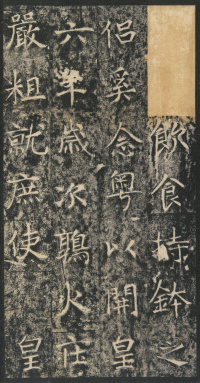 飲食持鉢之
侶奚念粵以開皇
六年歲次鶉火庄
嚴粗就庶使 皇